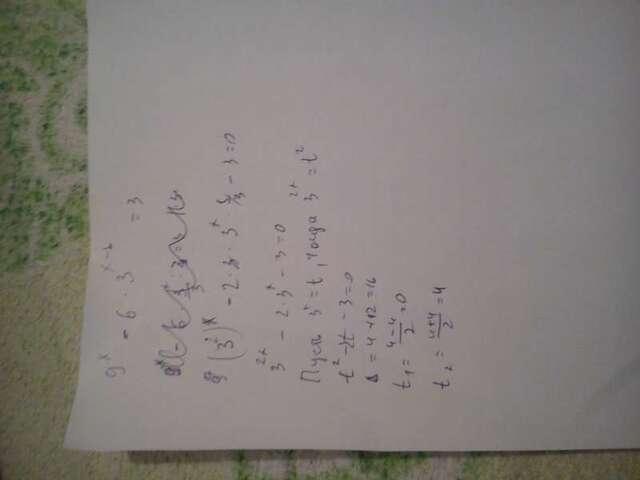 9^x - 6 · 3^{x-1} = 3
(3^2)^x - 2 · 3 · 3^x · 1/3 - 3 = 0
3^{2x} - 2 · 3^x - 3 = 0
Пусть 3^x = t, тогда 3^{2x} = t^2
t^2 - 2t - 3 = 0
D = 4 + 12 = 16
t_1 = \frac{4-4}{2} = 0
t_2 = \frac{4+4}{2} = 4